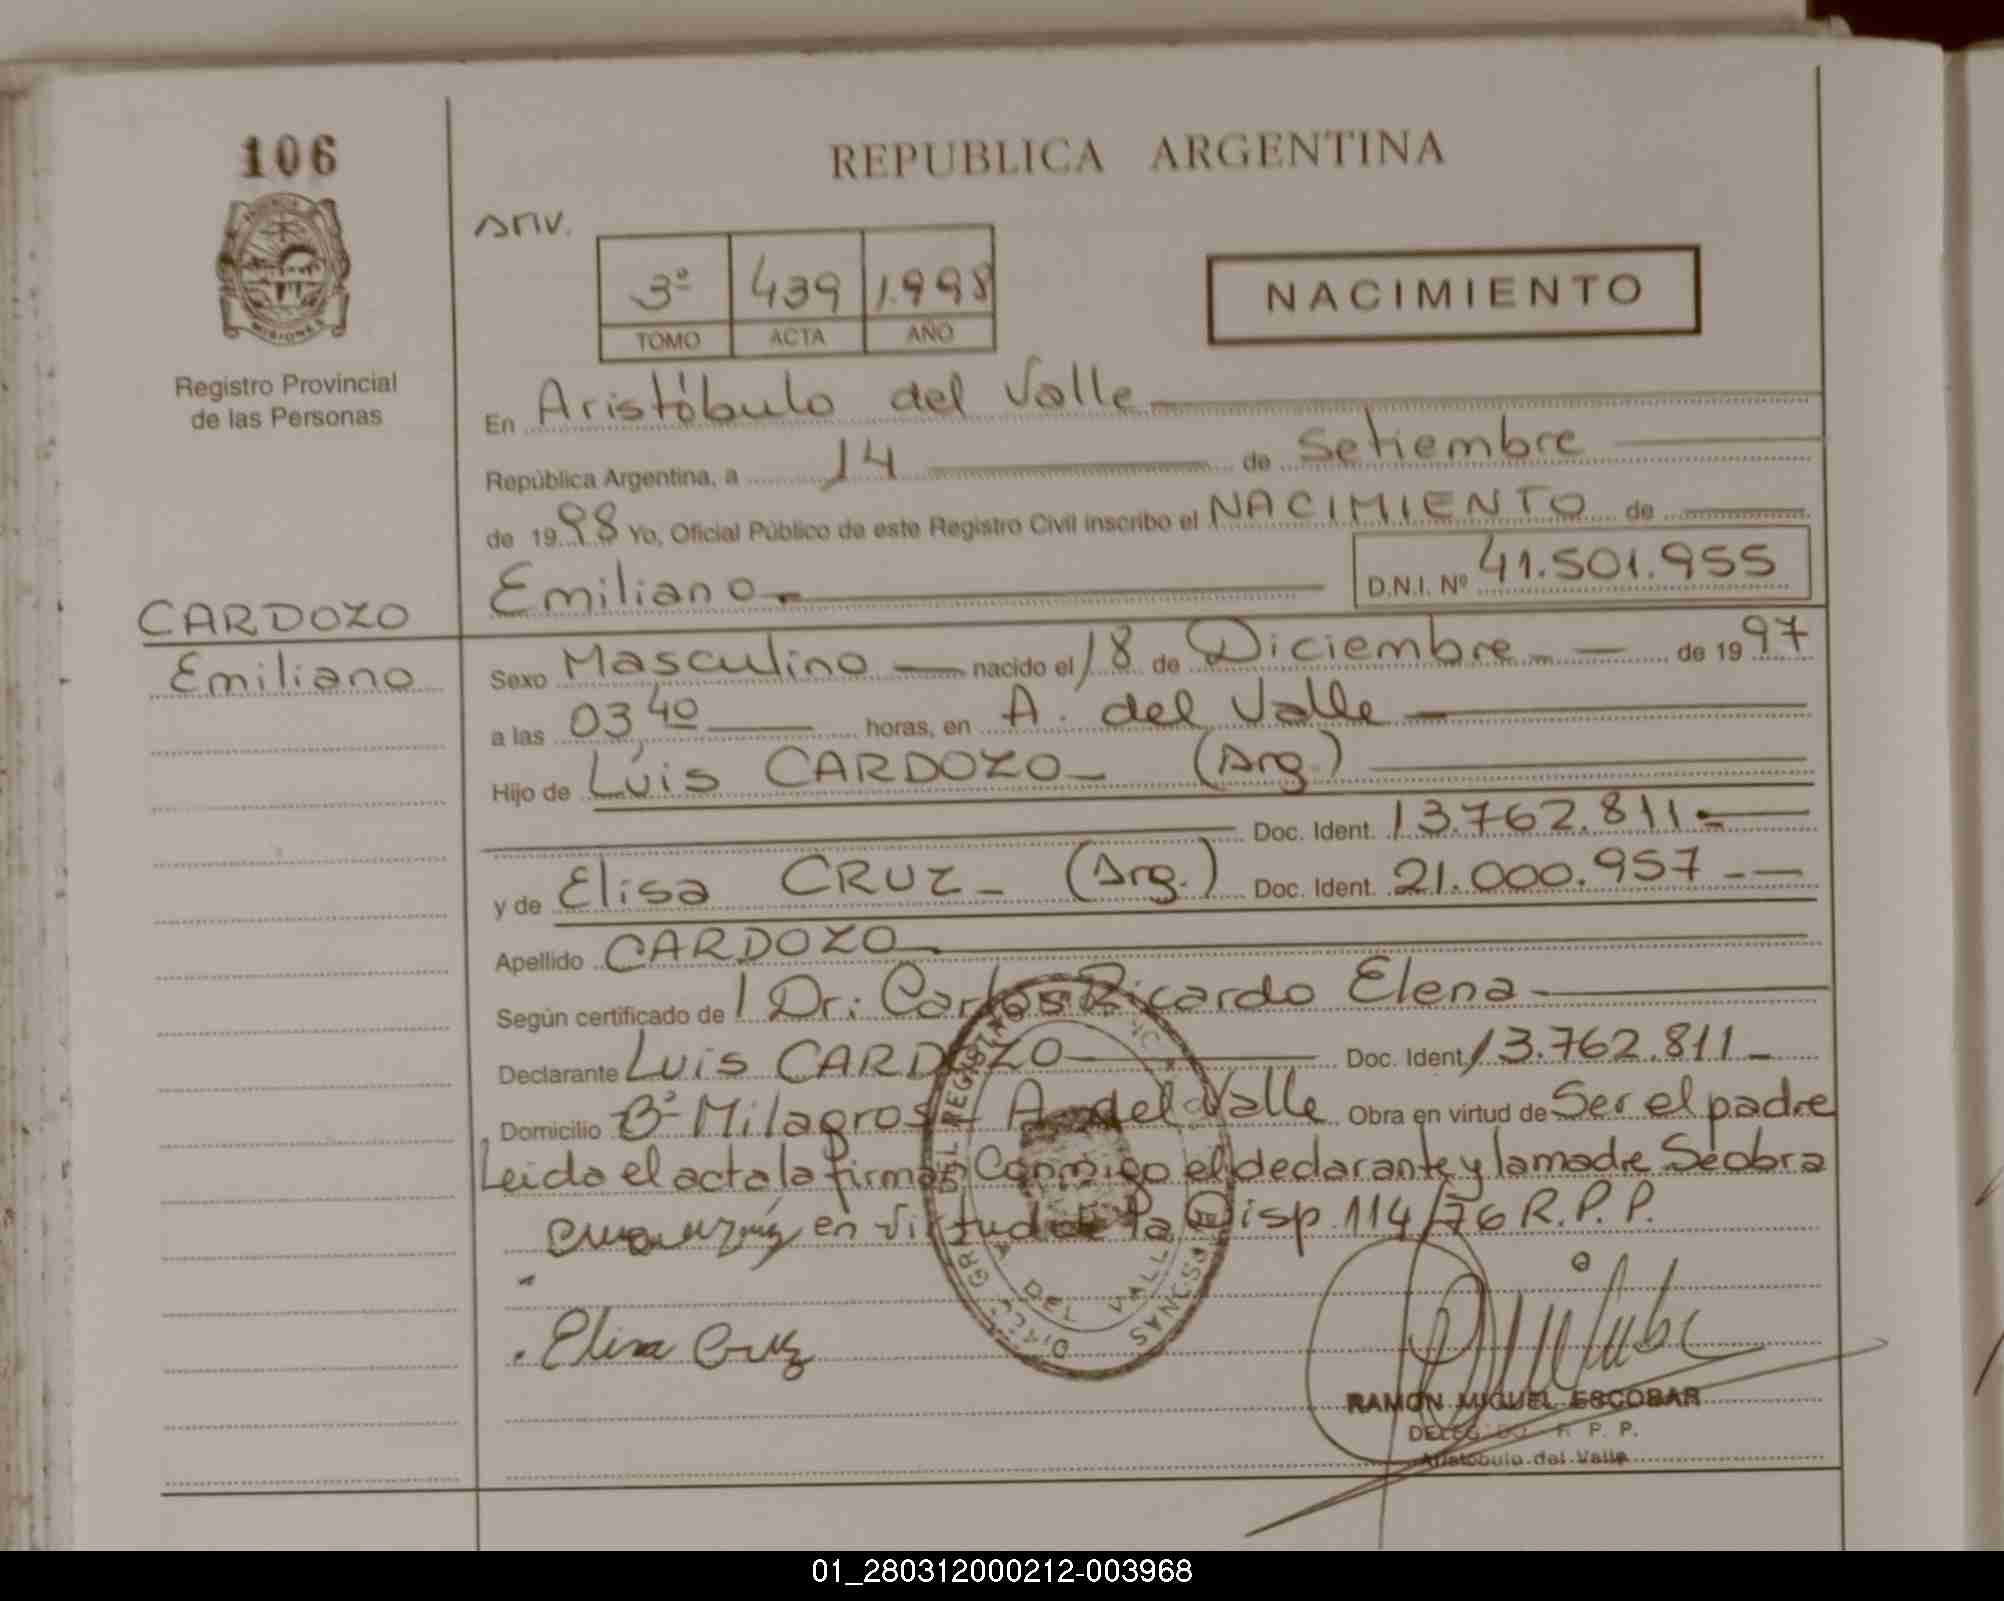 106
REPUBLICA ARGENTINA
3º 439 1.998
TOMO ACTA AÑO
NACIMIENTO
MISIONES
Registro Provincial
de las Personas
En Aristóbulo del Valle
República Argentina, a 14 de Setiembre
de 1998 Yo, Oficial Público de este Registro Civil inscribo el NACIMIENTO de
Emiliano D.N.I. Nº 41.501.955
CARDOZO
Emiliano
Sexo Masculino nacido el 18 de Diciembre de 1997
a las 03,40 horas, en A. del Valle
Hijo de Luis CARDOZO (Arg.)
Doc. Ident. 13.762.811
y de Elisa CRUZ (Arg.) Doc. Ident. 21.000.957
Apellido CARDOZO
Según certificado de Dr: Carlos Ricardo Elena
Declarante Luis CARDOZO Doc. Ident. 13.762.811
Domicilio Bº Milagros A. del Valle Obra en virtud de Ser el padre
Leida el acta la firman Conmigo el declarante y la madre Se obra
en virtud de la Disp. 114/76 R.P.P.
Elisa Cruz
DEL REGISTRO
DEL VALLE
RAMON MIGUEL ESCOBAR
DELEGADO R. P. P.
Aristobulo del Valle
01_280312000212-003968